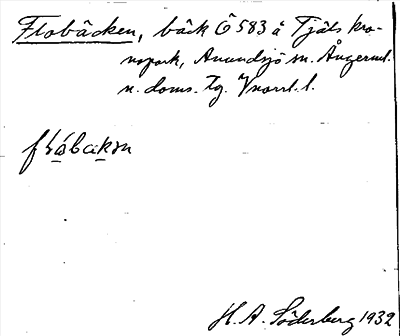 Flobäcken, bäck Ö 583 å Tjäls kro-
nopark, Anundsjö sn. Ångerml.
n. doms. tg. Vnorrl. l.
flåbäkən
H. A. Söderberg 1932